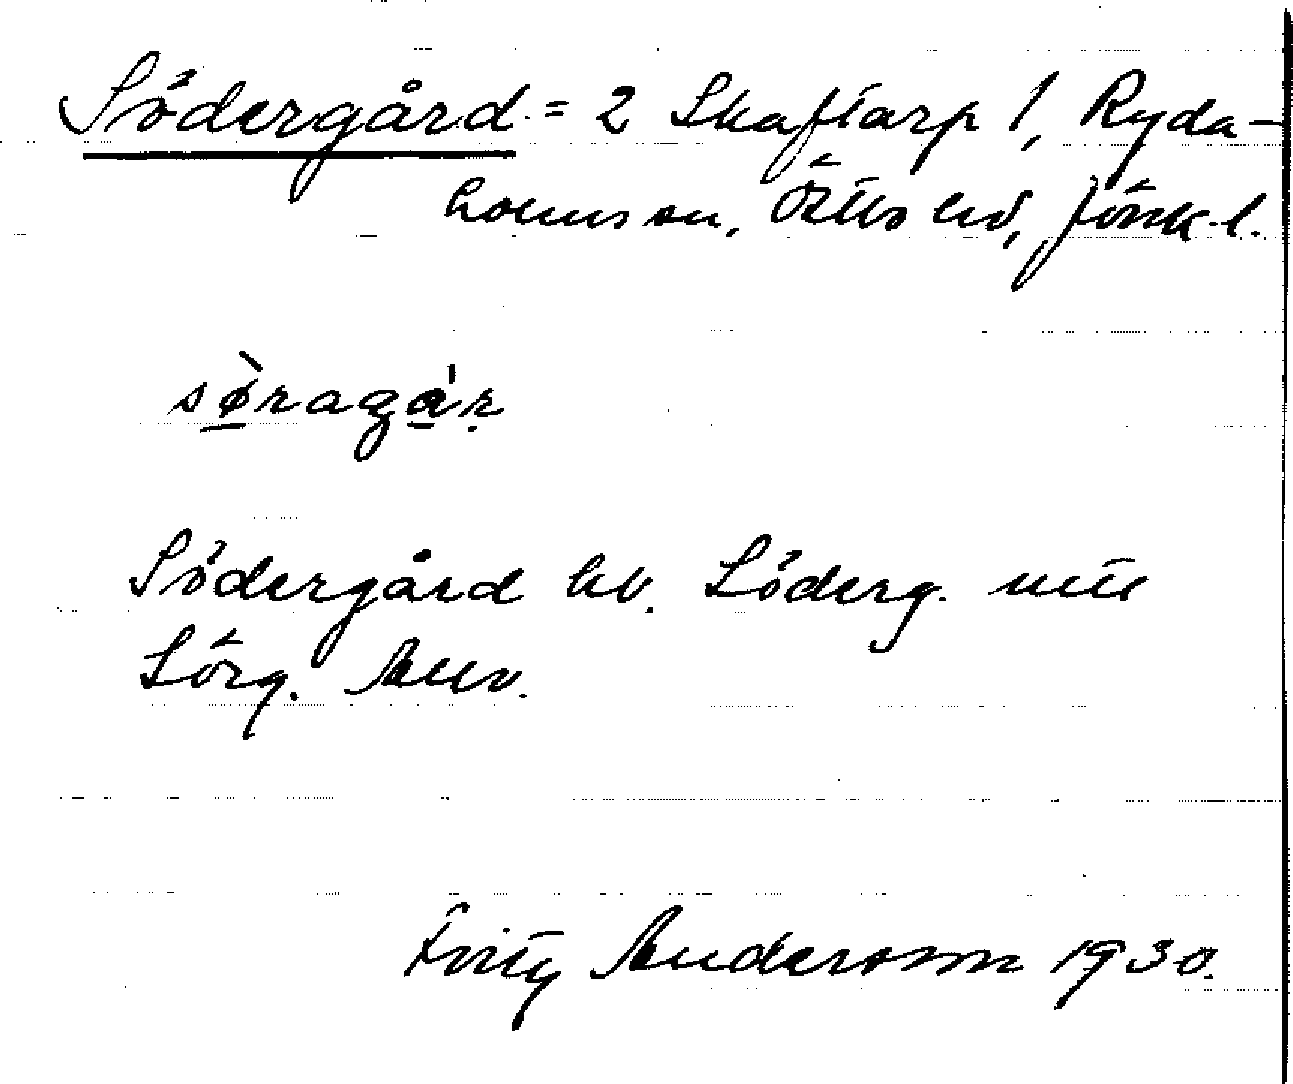 Södergård = 2 Skaftarp 1, Ryda-
holms sn, Östbo hd, Jönk. l.
sǿ̀ragár
Södergård hv. Söderg. utt
Sörg. Allv.
Fritz Andersson 1930.